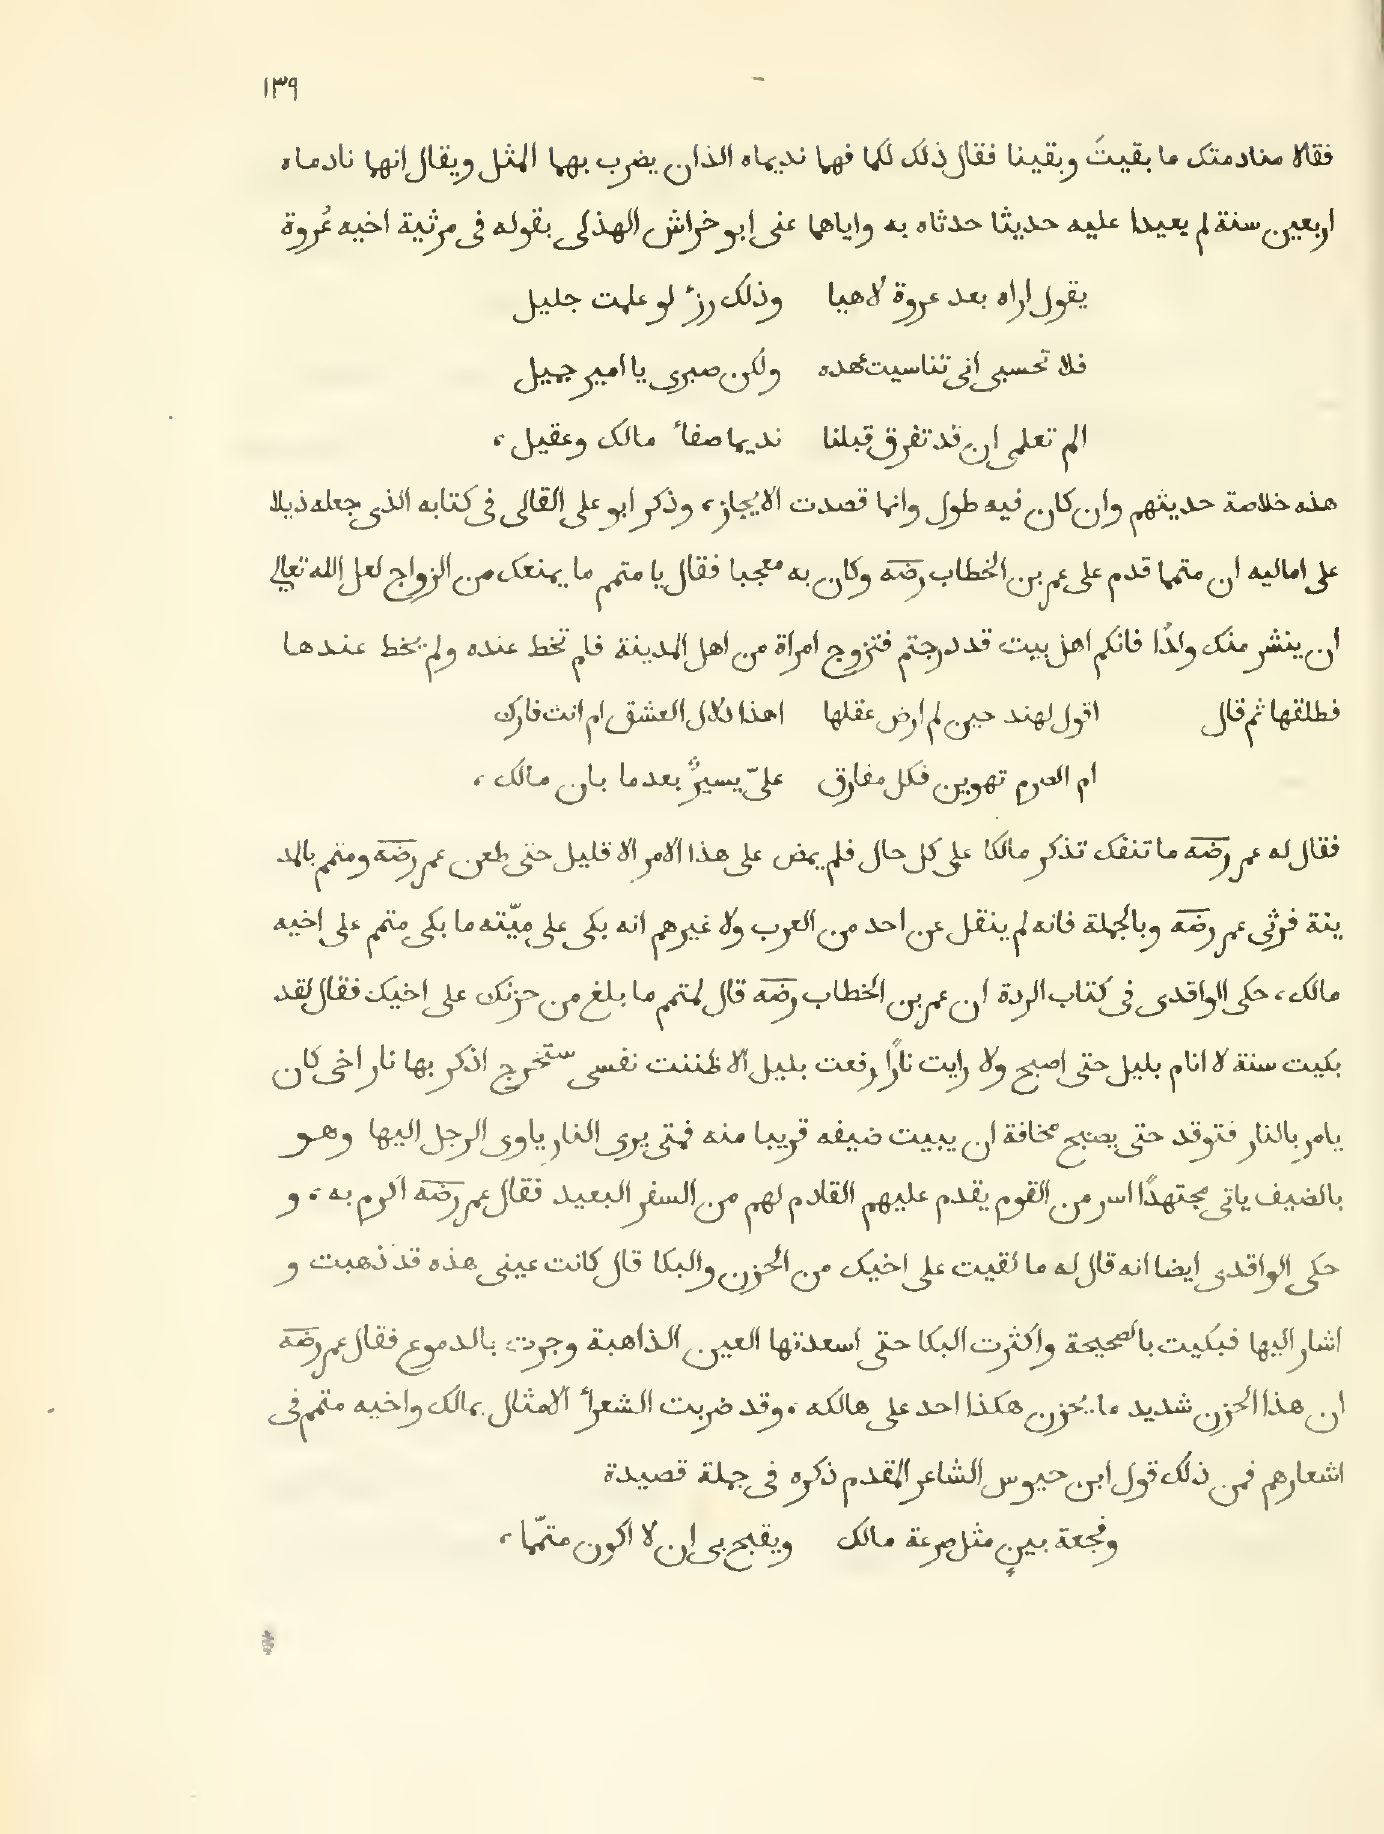 ١٣٩
فقالا منادمتك ما بقيتَ وبقينا فقال ذلك لكما فهما نديماه الذان يضرب بهما المثل ويقال انهما نادماه
اربعين سنة لم يعيدا عليه حديثا حدثاه به واياهما عنى ابو خراش الهذلى بقوله فى مرثية اخيه عُروة
يقول اراه بعد عروة لاهيا وذلك رزٔ لو علمت جليل
فلا تحسبى انى تناسيت عهده ولكن صبرى يا اميم جميل
الم تعلمى ان قد تفرق قبلنا نديما صفأ مالك وعقيل،
هذه خلاصة حديثهم وان كان فيه طول وانما قصدت الايجاز، وذكر ابو على القالى فى كتابه الذى جعله ذيلا
على اماليه ان متمما قدم على عمر بن الخطاب رضه وكان به معجبا فقال يا متمم ما يمنعك من الزواج لعل الله تعالى
ان ينشر منك ولدًا فانكم اهل بيت قد درجتم فتزوج امراة من اهل المدينة فلم تحظ عنده ولم يحظ عندها
فطلقها ثم قال اقول لهند حين لم ارض عقلها اهذا دلال العشق ام انت فارك
ام الصرم تهوين فكل مفارق علىّ يسيرٌ بعد ما بان مالك،
فقال له عمر رضه ما تنفك تذكر مالكا على كل حال فلم يمض على هذا الامر الا قليل حتى طعن عمر رضه ومتمم بالمد
ينة فرثى عمر رضه وبالجملة فانه لم ينقل عن احد من العرب ولا غيرهم انه بكى على ميّته ما بكى متمم على اخيه
مالك، حكى الواقدى فى كتاب الردة ان عمر بن الخطاب رضه قال لمتمم ما بلغ من حزنك على اخيك فقال لقد
بكيت سنة لا انام بليل حتى اصبح ولا رايت نارًا رفعت بليل الا ظننت نفسى ستخرج اذكر بها نار اخى كان
يامر بالنار فتوقد حتى يصبح مخافة ان يبيت ضيفه قريبا منه فمتى يرى النار ياوى الرجل اليها وهو
بالضيف ياتى مجتهدًا اسر من القوم يقدم عليهم القادم لهم من السفر البعيد فقال عمر رضه اكرم به، و
حكى الواقدى ايضا انه قال له ما لقيت على اخيك من الحزن والبكا قال كانت عينى هذه قد ذهبت و
اشار اليها فبكيت بالصحيحة واكثرت البكا حتى اسعدتها العين الذاهبة وجرت بالدموع فقال عمر رضه
ان هذا الحزن شديد ما يُحزن هكذا احد على هالكه، وقد ضربت الشعرأ الامثال بمالك واخيه متمم فى
اشعارهم فمن ذلك قول ابن حيوس الشاعر المقدم ذكره فى جملة قصيدة
وفجعة بينٍ مثل صرعة مالك ويقبح بى ان لا اكون متمّما،